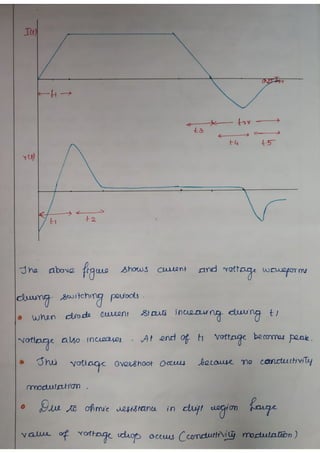 I(t)
t1
trr
t3
t4
t5
v(t)
t1
t2
The above figure shows current and voltage waveforms
during switching periods
• When diode current starts increasing during t1
voltage also increases . At end of t1 voltage becomes peak.
• This voltage overshoot occurs because no conductivity
modulation .
• Due to ohmic resistance in drift region large
value of voltage drop occurs (conductivity modulation)